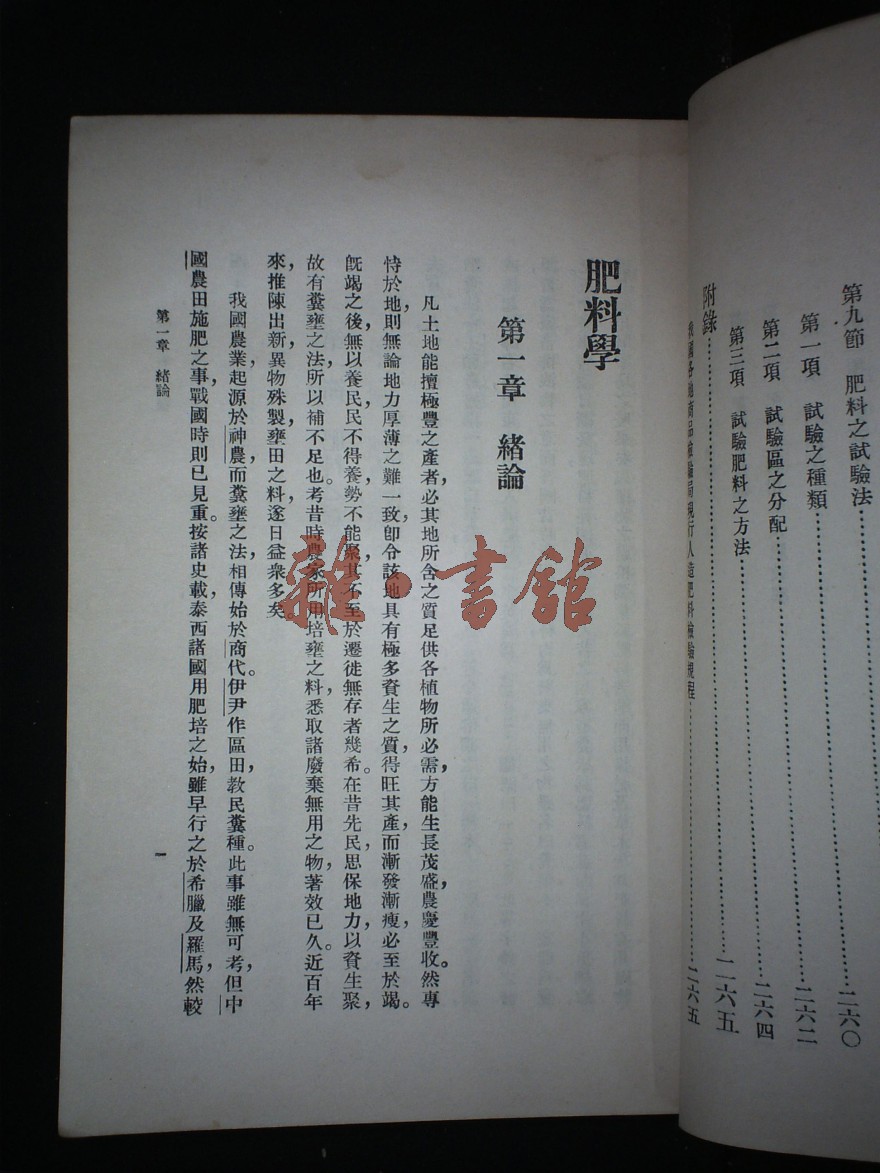 第九節　肥料之試驗法……二六〇
第一項　試驗之種類……二六二
第二項　試驗區之分配……二六四
第三項　試驗肥料之方法……二六五
附錄……二六五
我國各地商品檢驗局現行人造肥料檢驗規程
肥料學
第一章　緒論
凡土地能擅極豐之產者，必其地所含之質足供各植物所必需，方能生長茂盛，農慶豐收。然專
恃於地，則無論地力厚薄之難一致，卽令該地具有極多資生之質，得旺其產，而漸發漸瘦，必至於竭。
旣竭之後，無以養民，民不得養，勢不能聚，其不至於遷徙無存者幾希。在昔先民，思保地力以資生聚，
故有糞壅之法，所以補不足也。考昔時農家所用培壅之料，悉取諸廢棄無用之物，著效已久。近百年
來，推陳出新，異物殊製，壅田之料，遂日益衆多矣。
我國農業起源於神農，而糞壅之法，相傳始於商代。伊尹作區田，教民糞種。此事雖無可考，但中
國農田施肥之事，戰國時則已見重。按諸史載，泰西諸國用肥培之始，雖早行之於希臘及羅馬，然較
第一章　緒論
一
雜·書館